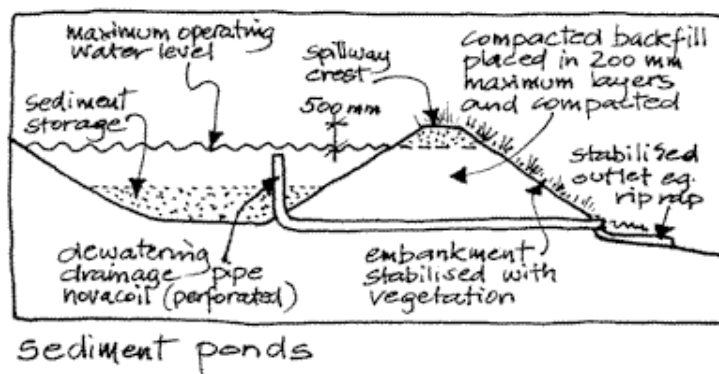 maximum operating
water level
sediment
storage
spillway
crest
500 mm
compacted backfill
placed in 200 mm
maximum layers
and compacted
stabilised
outlet eg.
rip rap
dewatering
drainage pipe
novacoil (perforated)
embankment
stabilised with
vegetation
sediment ponds